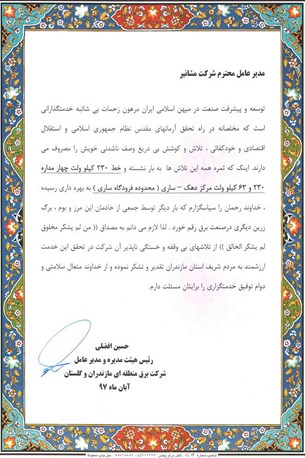 مدیر عامل محترم شرکت مشانیر
توسعه و پیشرفت صنعت در میهن اسلامی ایران مرهون زحمات بی شائبه خدمتگذارانی
است که مخلصانه در راه تحقق آرمانهای مقدس نظام جمهوری اسلامی و استقلال
اقتصادی و خودکفائی ، تلاش و کوشش بی دریغ وصف ناشدنی خویش را مصروف می
دارند. اینک که ثمره همه این تلاش ها به بار نشسته و خط ۲۳۰ کیلو ولت چهار مداره
۲۳۰ و ۶۳ کیلو ولت مرکز دهک – ساری ( محدوده فرودگاه ساری ) به بهره داری رسیده
، خداوند رحمان را سپاسگزارم که بار دیگر توسط جمعی از خادمان این مرز و بوم ، برگ
زرین دیگری درصنعت برق رقم خورد . لذا لازم می دانم به مصداق (( من لم یشکر مخلوق
لم یشکر الخالق )) از تلاشهای بی وقفه و خستگی ناپذیر آن شرکت در تحقق این خدمت
ارزشمند به مردم شریف استان مازندران تقدیر و تشکر نموده و از خداوند متعال سلامتی و
دوام توفیق خدمتگزاری را برایتان مسئلت دارم.
حسین افضلی
رئیس هیئت مدیره و مدیر عامل
شرکت برق منطقه ای مازندران و گلستان
آبان ماه ۹۷